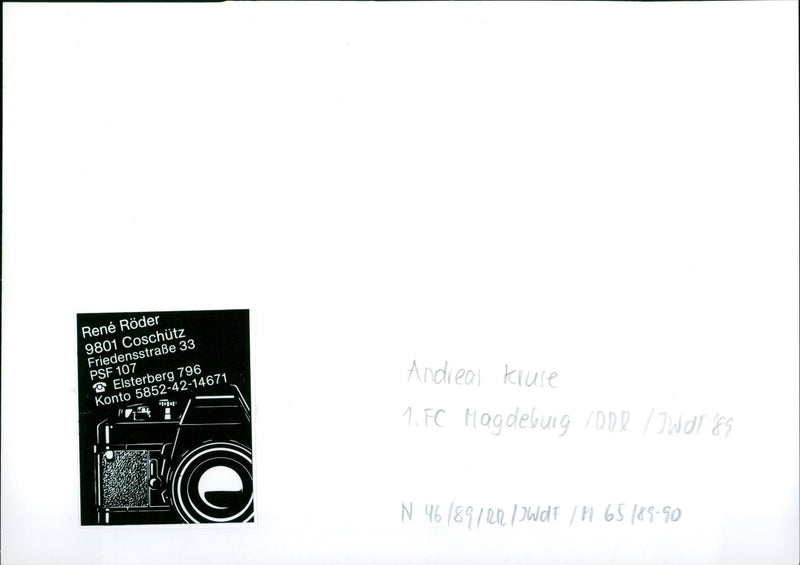 René Röder
9801 Coschütz
Friedensstraße 33
PSF 107
☎ Elsterberg 796
Konto 5852-42-14671
Andreas Kruse
1. FC Magdeburg / DDR / JWdF '89
N 46/89/RR/JWdF / M 65/89-90